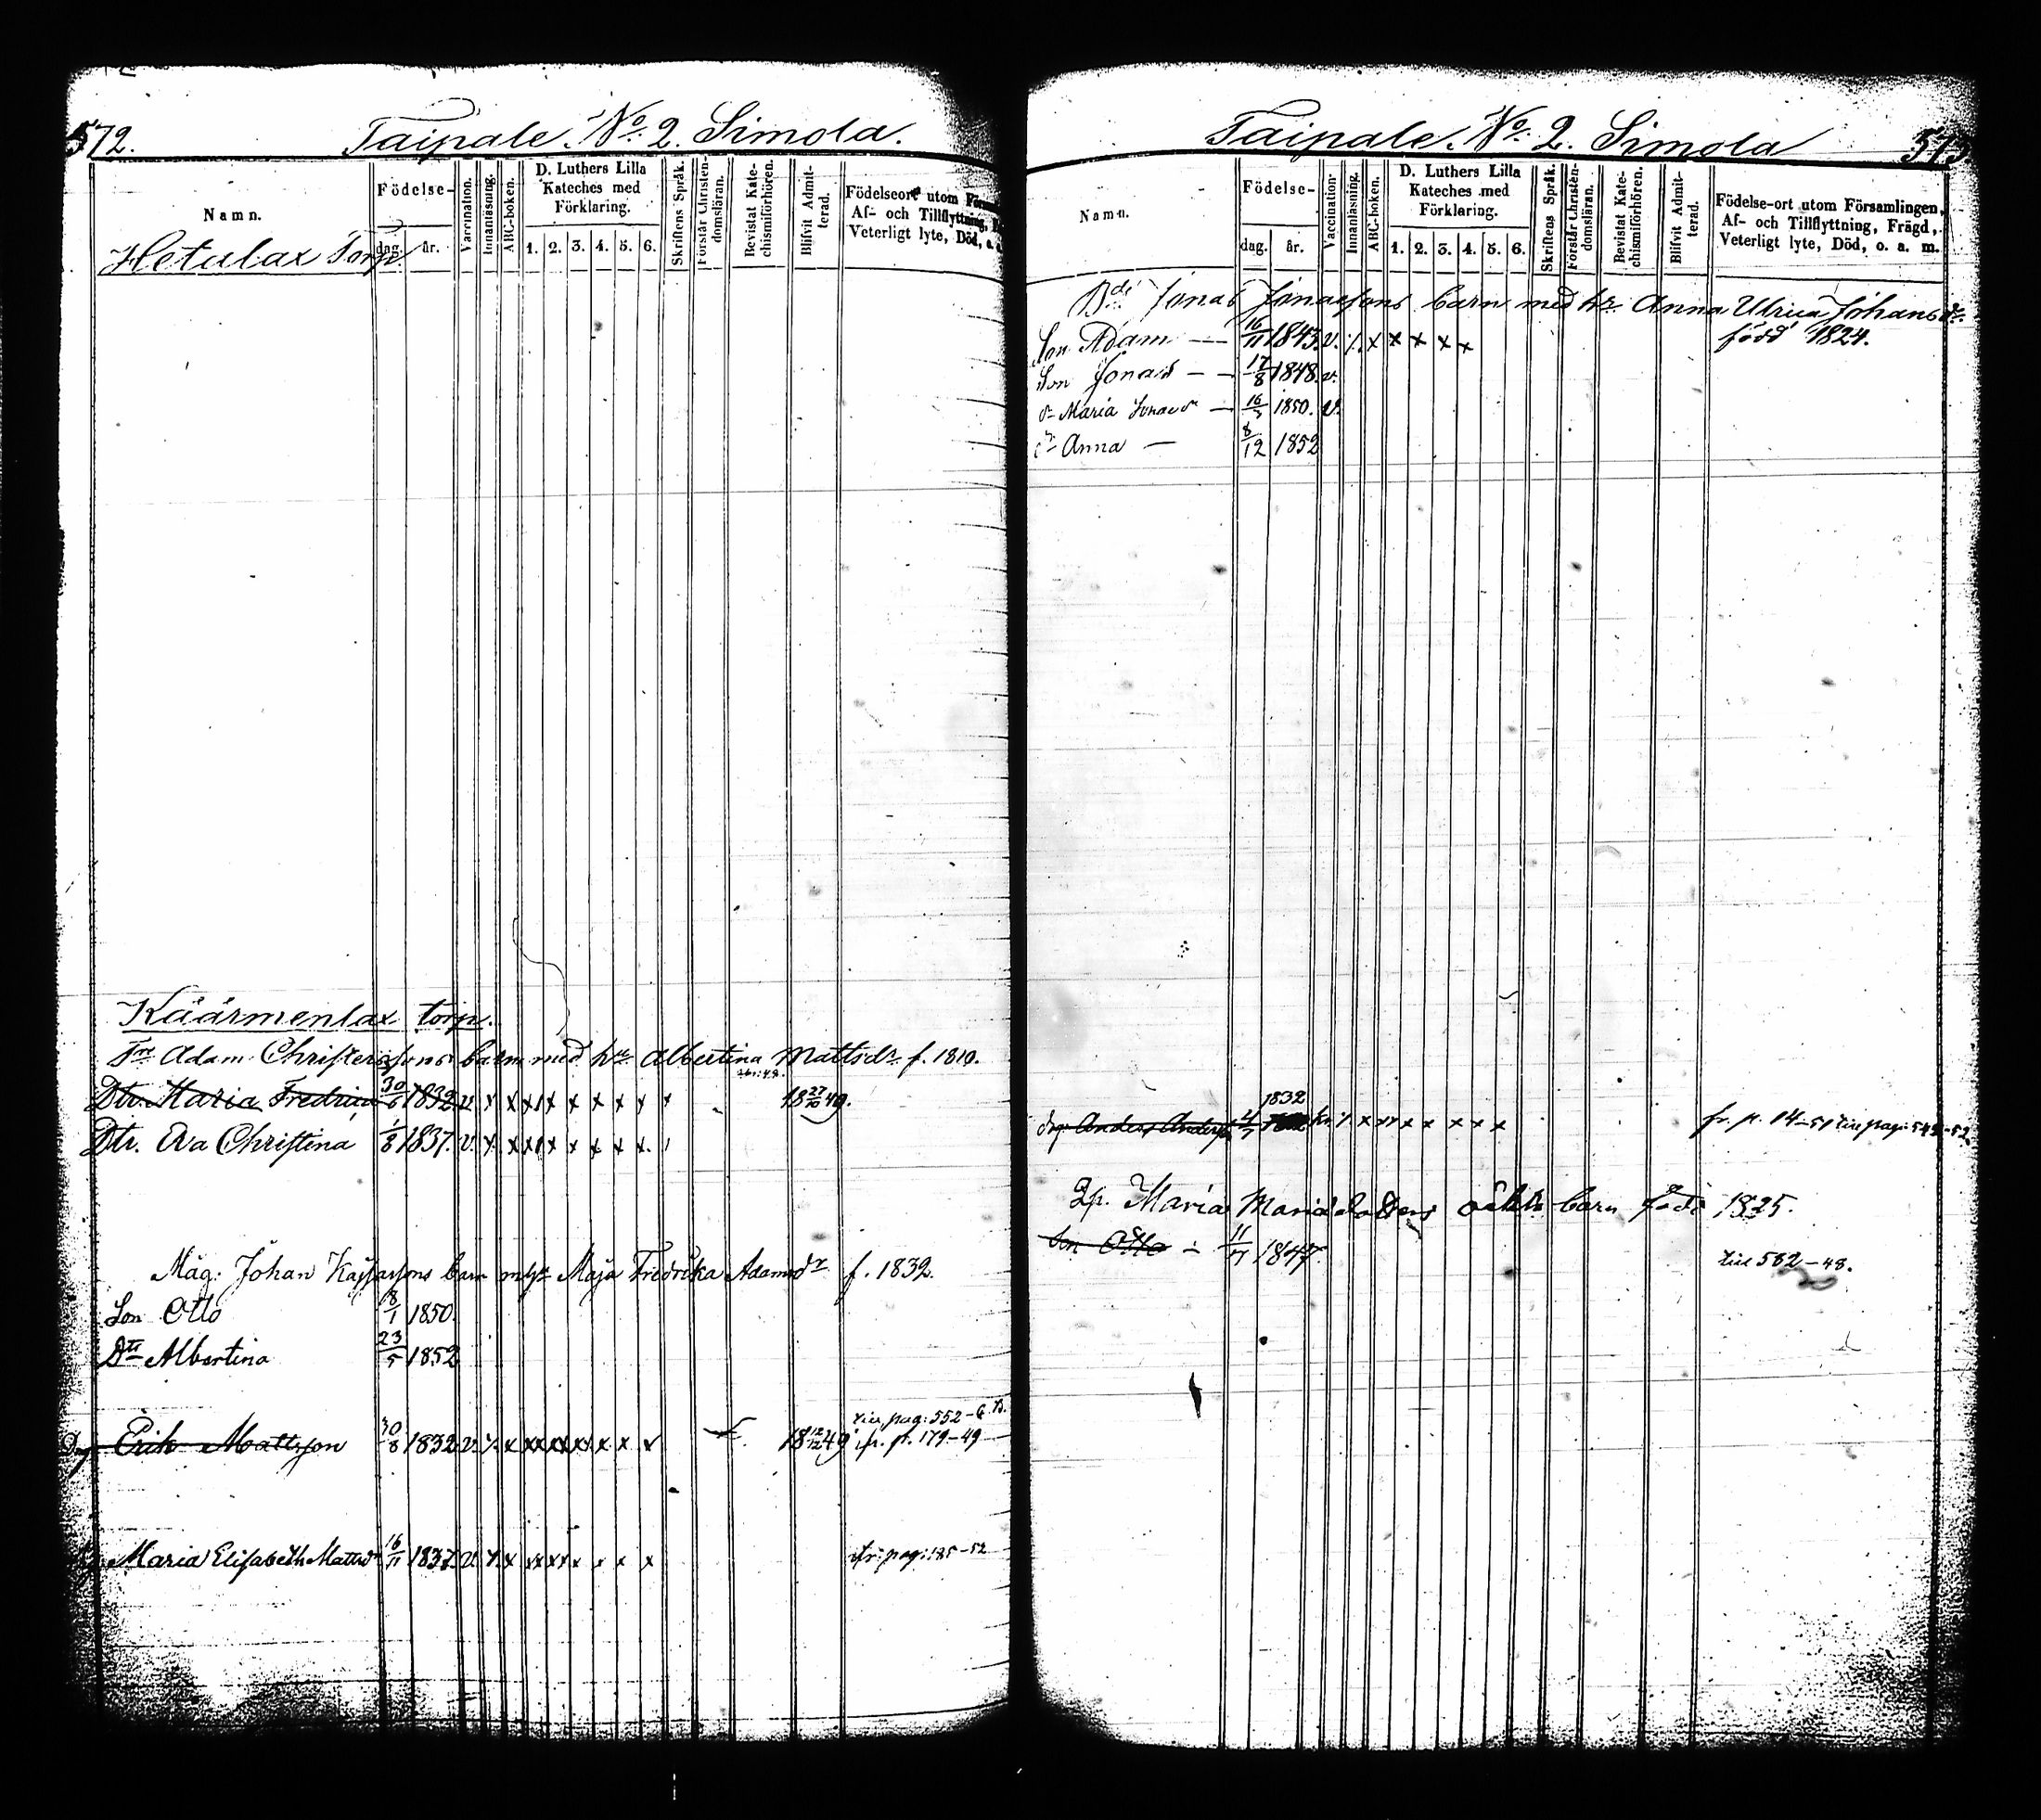 572. Taipale. No. 2. Simola.
Namn.
Födelse-
dag. år.
Vaccination.
Innanläsning.
ABC-boken.
D. Luthers Lilla
Kateches med
Förklaring.
1. 2. 3. 4. 5. 6.
Skriftens Språk.
Förstår Christen-
domsläran.
Bevistat Kate-
chismiförhören.
Blifvit Admit-
terad.
Födelseort utom
Af- och Tillflyttning,
Veterligt lyte, Död, o. a.
Hetulax Torp
Käärmenlax torp.
Adam Christersons barn med hu Albertina Mattsdr f. 1810.
Dtr. Maria Fredrica 30/6 1832 v. x x x x x x x x x 18 27/10 49.
Dtr. Eva Christina 1/8 1837. v. x x x x x x x x
Måg: Johan Kajssons barn m hu Maja Fredrika Adamsdr f. 1832.
Son Otto 8/1 1850.
Dtr Albertina 23/5 1852
till pag: 552-
Erik Mattsson 30/8 1832 v. x x xx xx xx x x x 18 12/12 49 ifr. p. 179-49
Maria Elisabeth Mattsdr 16/11 1837. v. x x xx xx x x x x ifr: pag: 185-52
Taipale. No. 2. Simola 573
Namn.
Födelse-
dag. år.
Vaccination.
Innanläsning.
ABC-boken.
D. Luthers Lilla
Kateches med
Förklaring.
1. 2. 3. 4. 5. 6.
Skriftens Språk.
Förstår Christen-
domsläran.
Bevistat Kate-
chismiförhören.
Blifvit Admit-
terad.
Födelse-ort utom Församlingen,
Af- och Tillflyttning, Frägd,
Veterligt lyte, Död, o. a. m.
Jonas Jonassons barn med hu. Anna Ulrica Johansdr.
Son Adam — 16/11 1843. v. x x x x x x född 1824.
Son Jonas — — 17/8 1848. v.
dr Maria Jonasdr — 16/7 1850. v.
dr Anna — 8/12 1852
1832
drg: Anders Andersson 4/7 x x x x x x x x fr. p. 14-51 till pag: 543-52
Qp. Maria Mariadotters oäkta barn född 1825.
Son Otto — 11/11 1847. till 582-48.